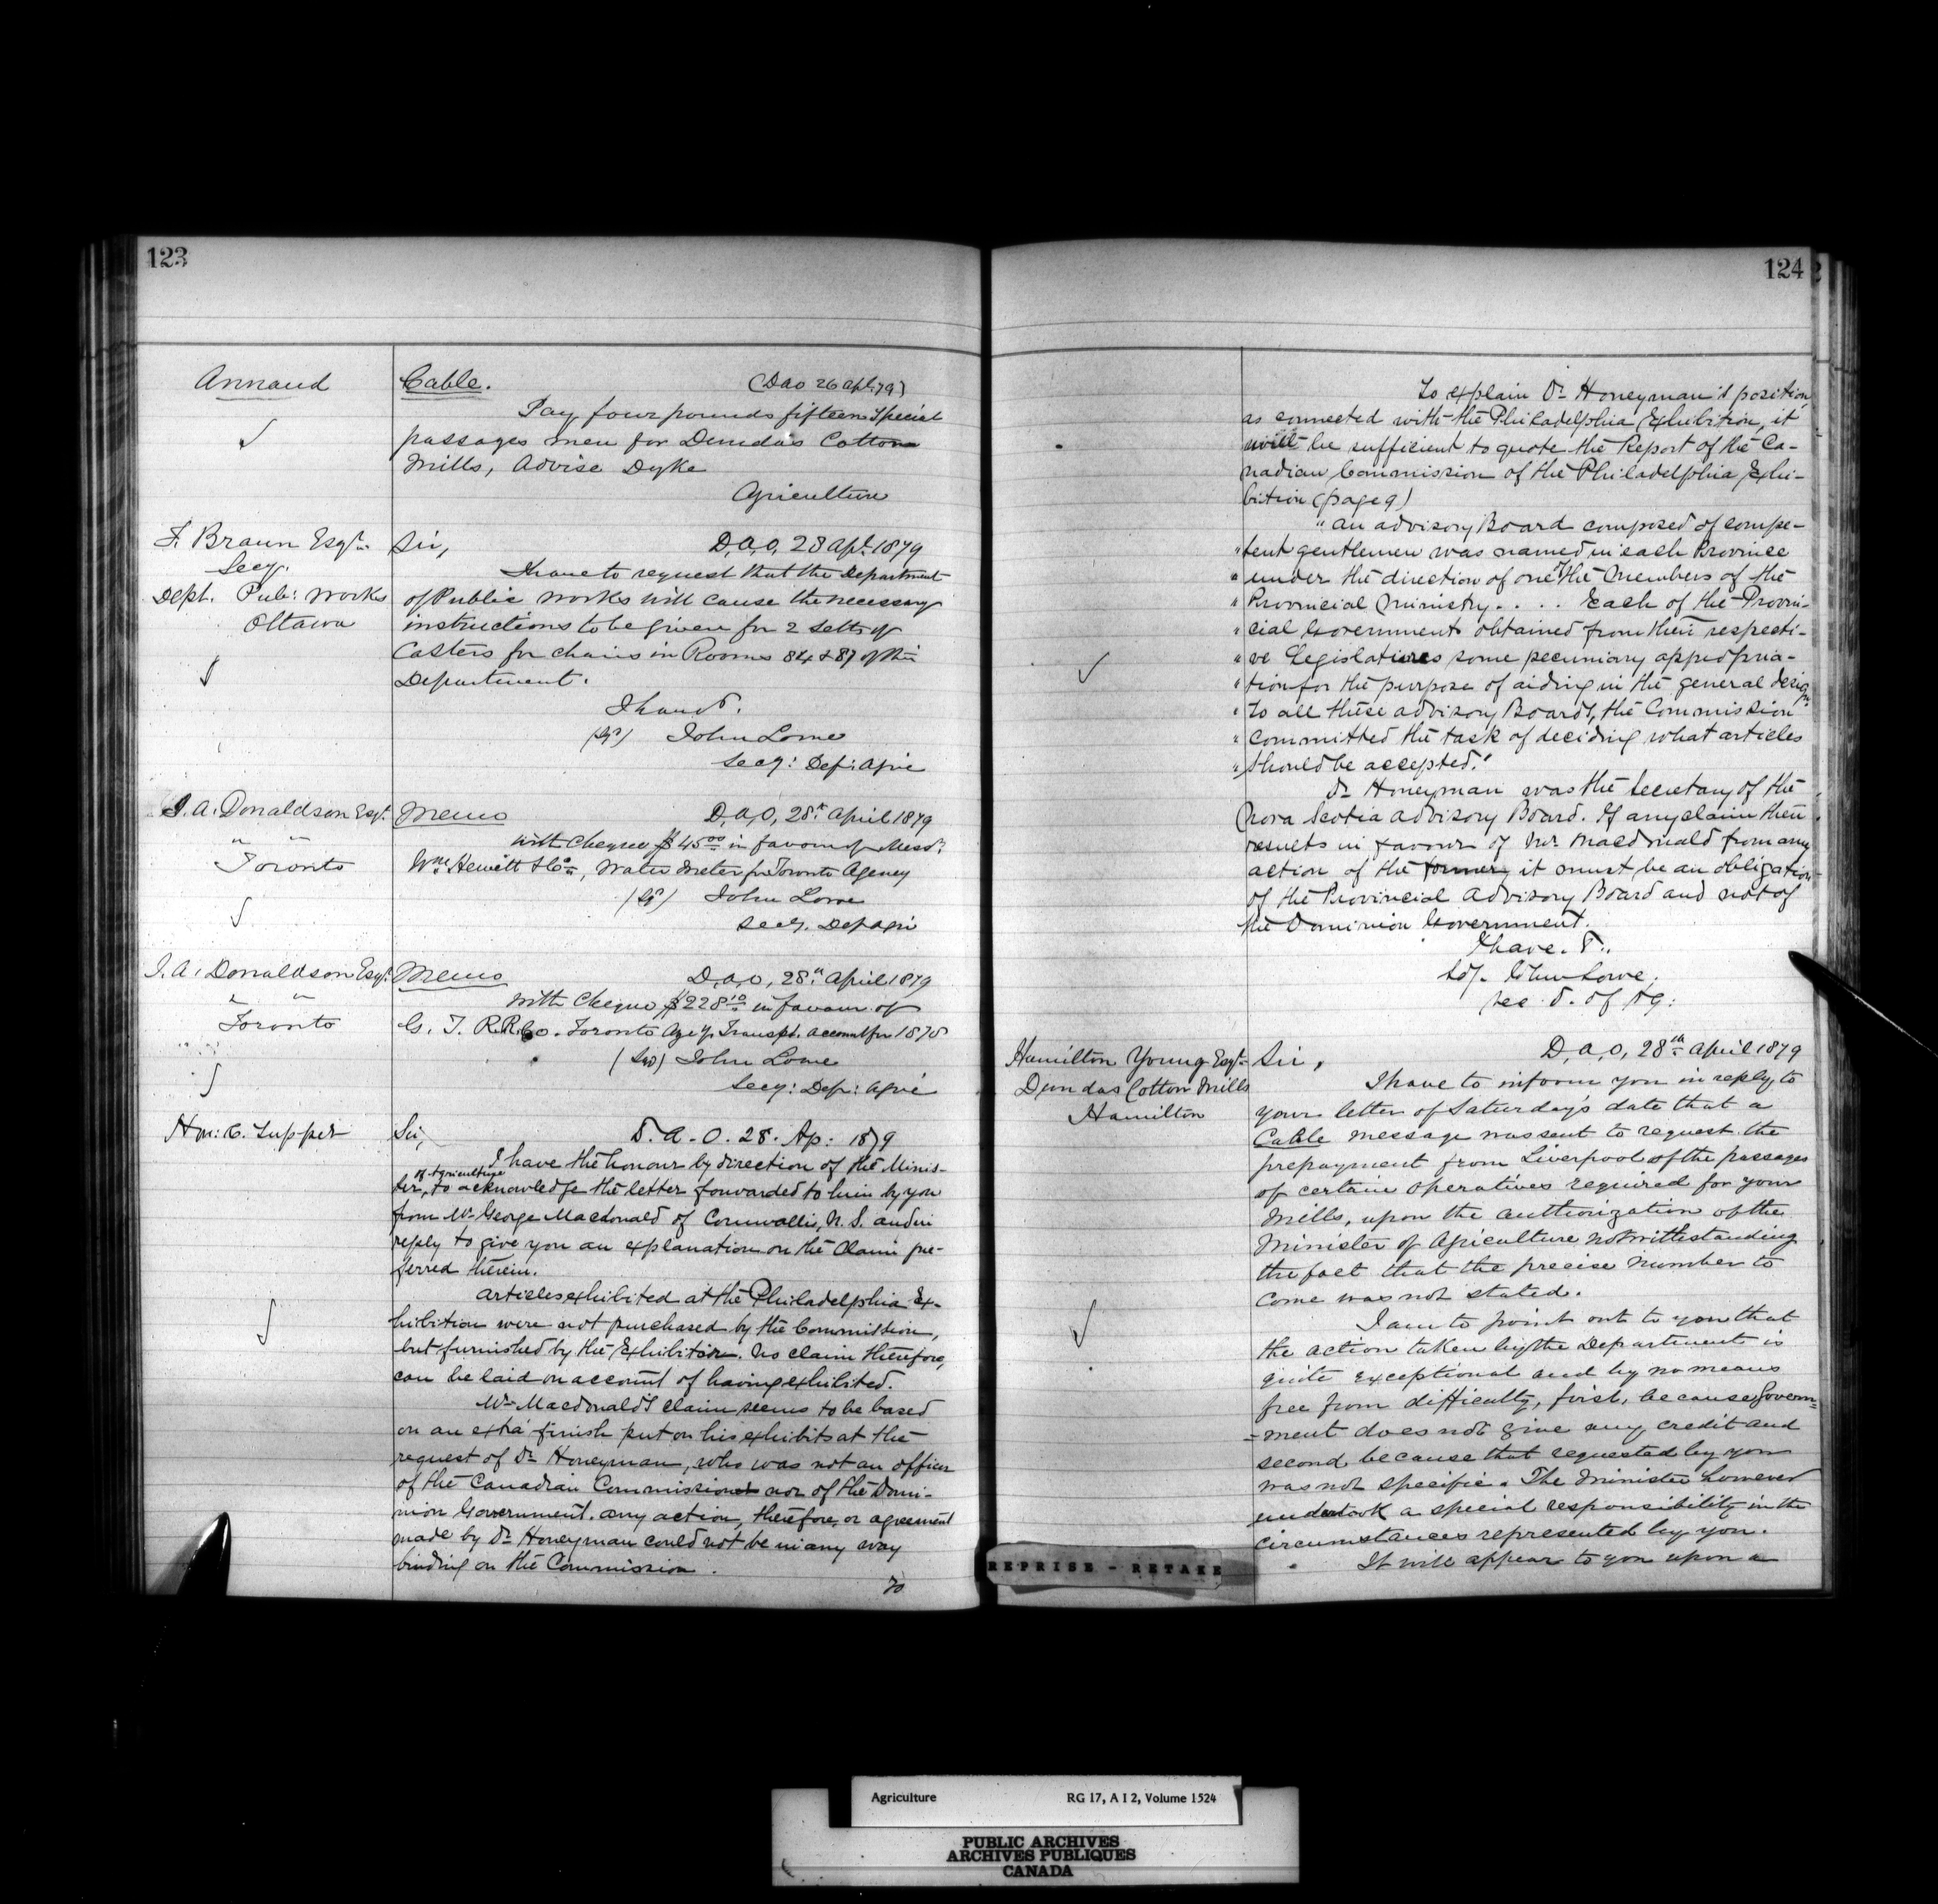 123
Annaud
Cable. (DAO 26 Apl. 79)
Pay four pounds fifteen special
passages men for Dundas Cotton
Mills, Advise Dyke
Agriculture
F. Braun Esqr.
Secy.
Dept. Pub: Works
Ottawa
Sir, D,A,O, 28 Apl. 1879
I have to request that the Department
of Public Works will cause the necessary
instructions to be given for 2 setts of
Casters for chairs in Rooms 84 & 87 of this
Department.
I have &.
(Sgd) John Lowe
Secy: Dep: Agric
J. A. Donaldson Esqr.
" "
Toronto
Memo D,A,O, 28th April 1879
With Cheque $45.00 in favour of Messrs
Wm. Hewitt & Co., Water Meter for Toronto Agency
(Sgd) John Lowe
Secy. Dep Agri
J. A. Donaldson Esqr.
" "
Toronto
Memo D,A,O, 28th April 1879
With Cheque $228.10 in favour of
G. T. R.R. Co. Toronto Agcy. Transpt. account for 1878
(Sgd) John Lowe
Secy: Dep: Agric
Hon: C. Tupper
Sir, D. A. O. 28. Ap: 1879
I have the honour by direction of the Minis-
of Agriculture
ter, to acknowledge the letter forwarded to him by you
from Mr. George Macdonald of Cornwallis, N. S. and in
reply to give you an explanation on the claim pre-
ferred therein.
Articles exhibited at the Philadelphia Ex-
hibition were not purchased by the Commission,
but furnished by the Exhibitor. No claim therefore,
can be laid on account of having exhibited.
Mr. Macdonald's claim seems to be based
on an extra finish put on his exhibits at the
request of Dr. Honeyman, who was not an officer
of the Canadian Commission nor of the Domi-
nion Government. Any action, therefore, or agreement
made by Dr. Honeyman could not be in any way
binding on the Commission.
To
124
To explain Dr. Honeyman's position
as connected with the Philadelphia Exhibition, it
will be sufficient to quote the Report of the Ca-
nadian Commission of the Philadelphia Exhi-
bition (page 9)
"An advisory Board composed of compe-
"tent gentlemen was named in each Province
of
"under the direction of one the Members of the
"Provincial Ministry. . . . Each of the Provin-
"cial Governments obtained from their respecti-
"ve Legislatures some pecuniary appropria-
"tion for the purpose of aiding in the general design.
"To all these advisory Boards, the Commission
"committed the task of deciding what articles
"should be accepted."
Dr. Honeyman was the Secretary of the
Nova Scotia Advisory Board. If any claim then
results in favour of Mr. Macdonald from any
action of the former, it must be an obligation
of the Provincial Advisory Board and not of
the Dominion Government.
I have. &.
Sd/. John Lowe,
sec. D. of Ag:
Hamilton Young Esqr.
Dundas Cotton Mills
Hamilton
Sir, D,A,O, 28th April 1879
I have to inform you in reply to
your letter of Saturday's date that a
Cable message was sent to request the
prepayment from Liverpool of the passages
of certain operatives required for your
Mills, upon the authorization of the
Minister of Agriculture notwithstanding
the fact that the precise number to
come was not stated.
I am to point out to you that
the action taken by the Department is
quite exceptional and by no means
free from difficulty, first, because Govern=
=ment does not give any credit and
second because that requested by you
was not specific. The Minister however
undertook a special responsibility in the
circumstances represented by you.
It will appear to you upon a
REPRISE - RETAKE
Agriculture RG 17, A I 2, Volume 1524
PUBLIC ARCHIVES
ARCHIVES PUBLIQUES
CANADA